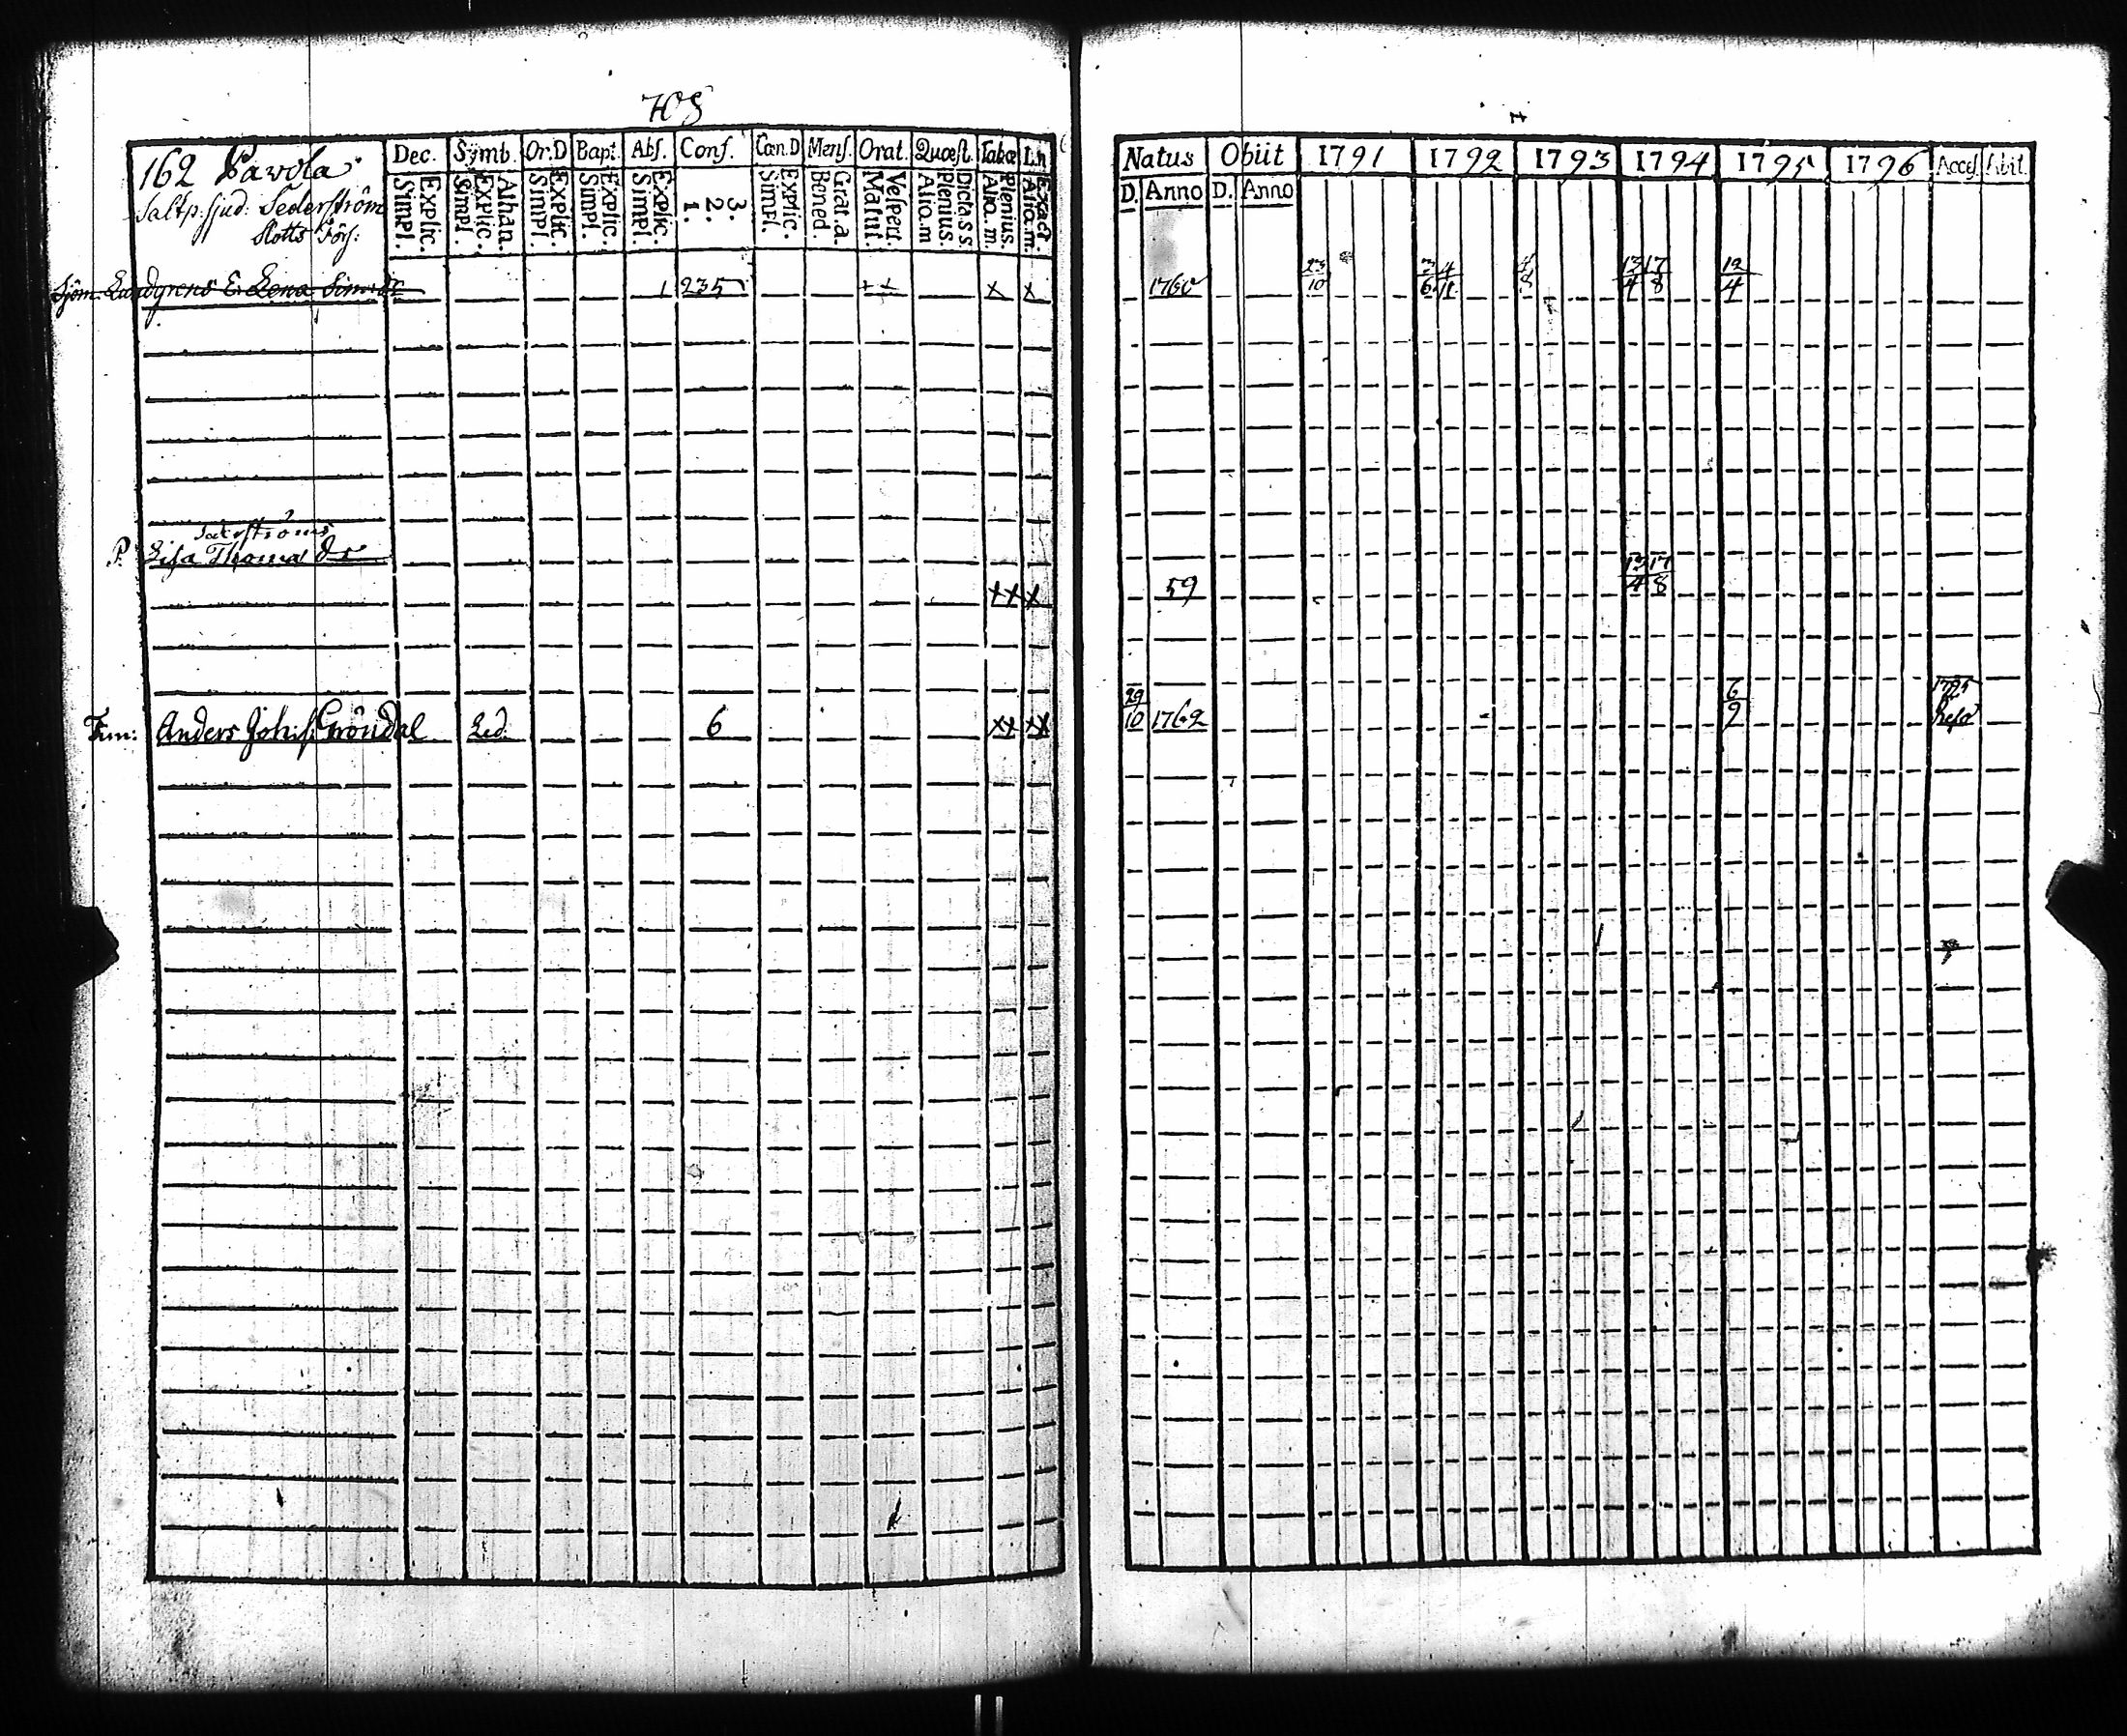 705
162 Pavola
Saltp. sjud: Sederström
Slotts Förs:
Dec. Symb. Or.D Bapt. Abs. Conf. Cœn.D Mens. Orat. Quœst. Tabœ L.n
Explic. Simpl.
Athan. Explic. Simpl.
Explic. Simpl.
Explic. Simpl.
Explic. Simpl.
3. 2. 1.
Explic. Simpl.
Grat.a. Bened.
Vespert. Matut.
Dicta s s. Plenius. Alio.m
Plenius. Alio.m.
Exact. Alio.m.
Natus Obiit 1791 1792 1793 1794 1795 1796 Acces. Abiit.
D. Anno D. Anno
Sjöm. Lundgrens E. Lena Sim: dr 1 235 + + x x 1760 23/10 3/6 4/11 13/4 17/8 12/4
P. Lisa Thomæ dr
x x x 59 13/4 17/8
Tim: Anders Johss. Gröndal Led. 6 xx xx 29/10 1762 6/9 1795